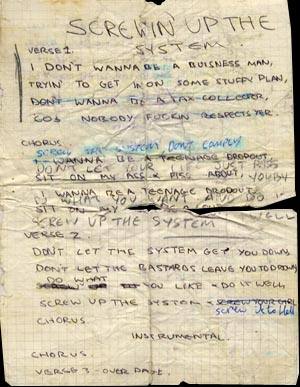 SCREWIN' UP THE
SYSTEM
VERSE 1
I DON'T WANNA BE A BUISNESS MAN,
TRYIN' TO GET IN ON SOME STUFFY PLAN,
DON'T WANNA BE A TAX COLLECTER,
COS NOBODY FUCKIN RESPECTS YER.
CHORUS
SCREW THE SYSTEM DON'T COMPLY
I WANNA BE A TEENAGE DROPOUT
SIT ON MY ASS & PISS ABOUT, YOU BY
I WANNA BE A TEENAGE DROPOUT
WHAT YOU WANT AND DO IT
SIT ON MY
WELL
SCREW UP THE SYSTEM
VERSE 2
DON'T LET THE SYSTEM GET YOU DOWN,
DON'T LET THE BASTARDS LEAVE YOU TO DROWN,
DO WHAT YOU LIKE & DO IT WELL,
SCREW UP THE SYSTEM & SCREW YOUR GIRL
screw it to Hell
CHORUS
INSTRUMENTAL
CHORUS
VERSE 3 - OVER PAGE.